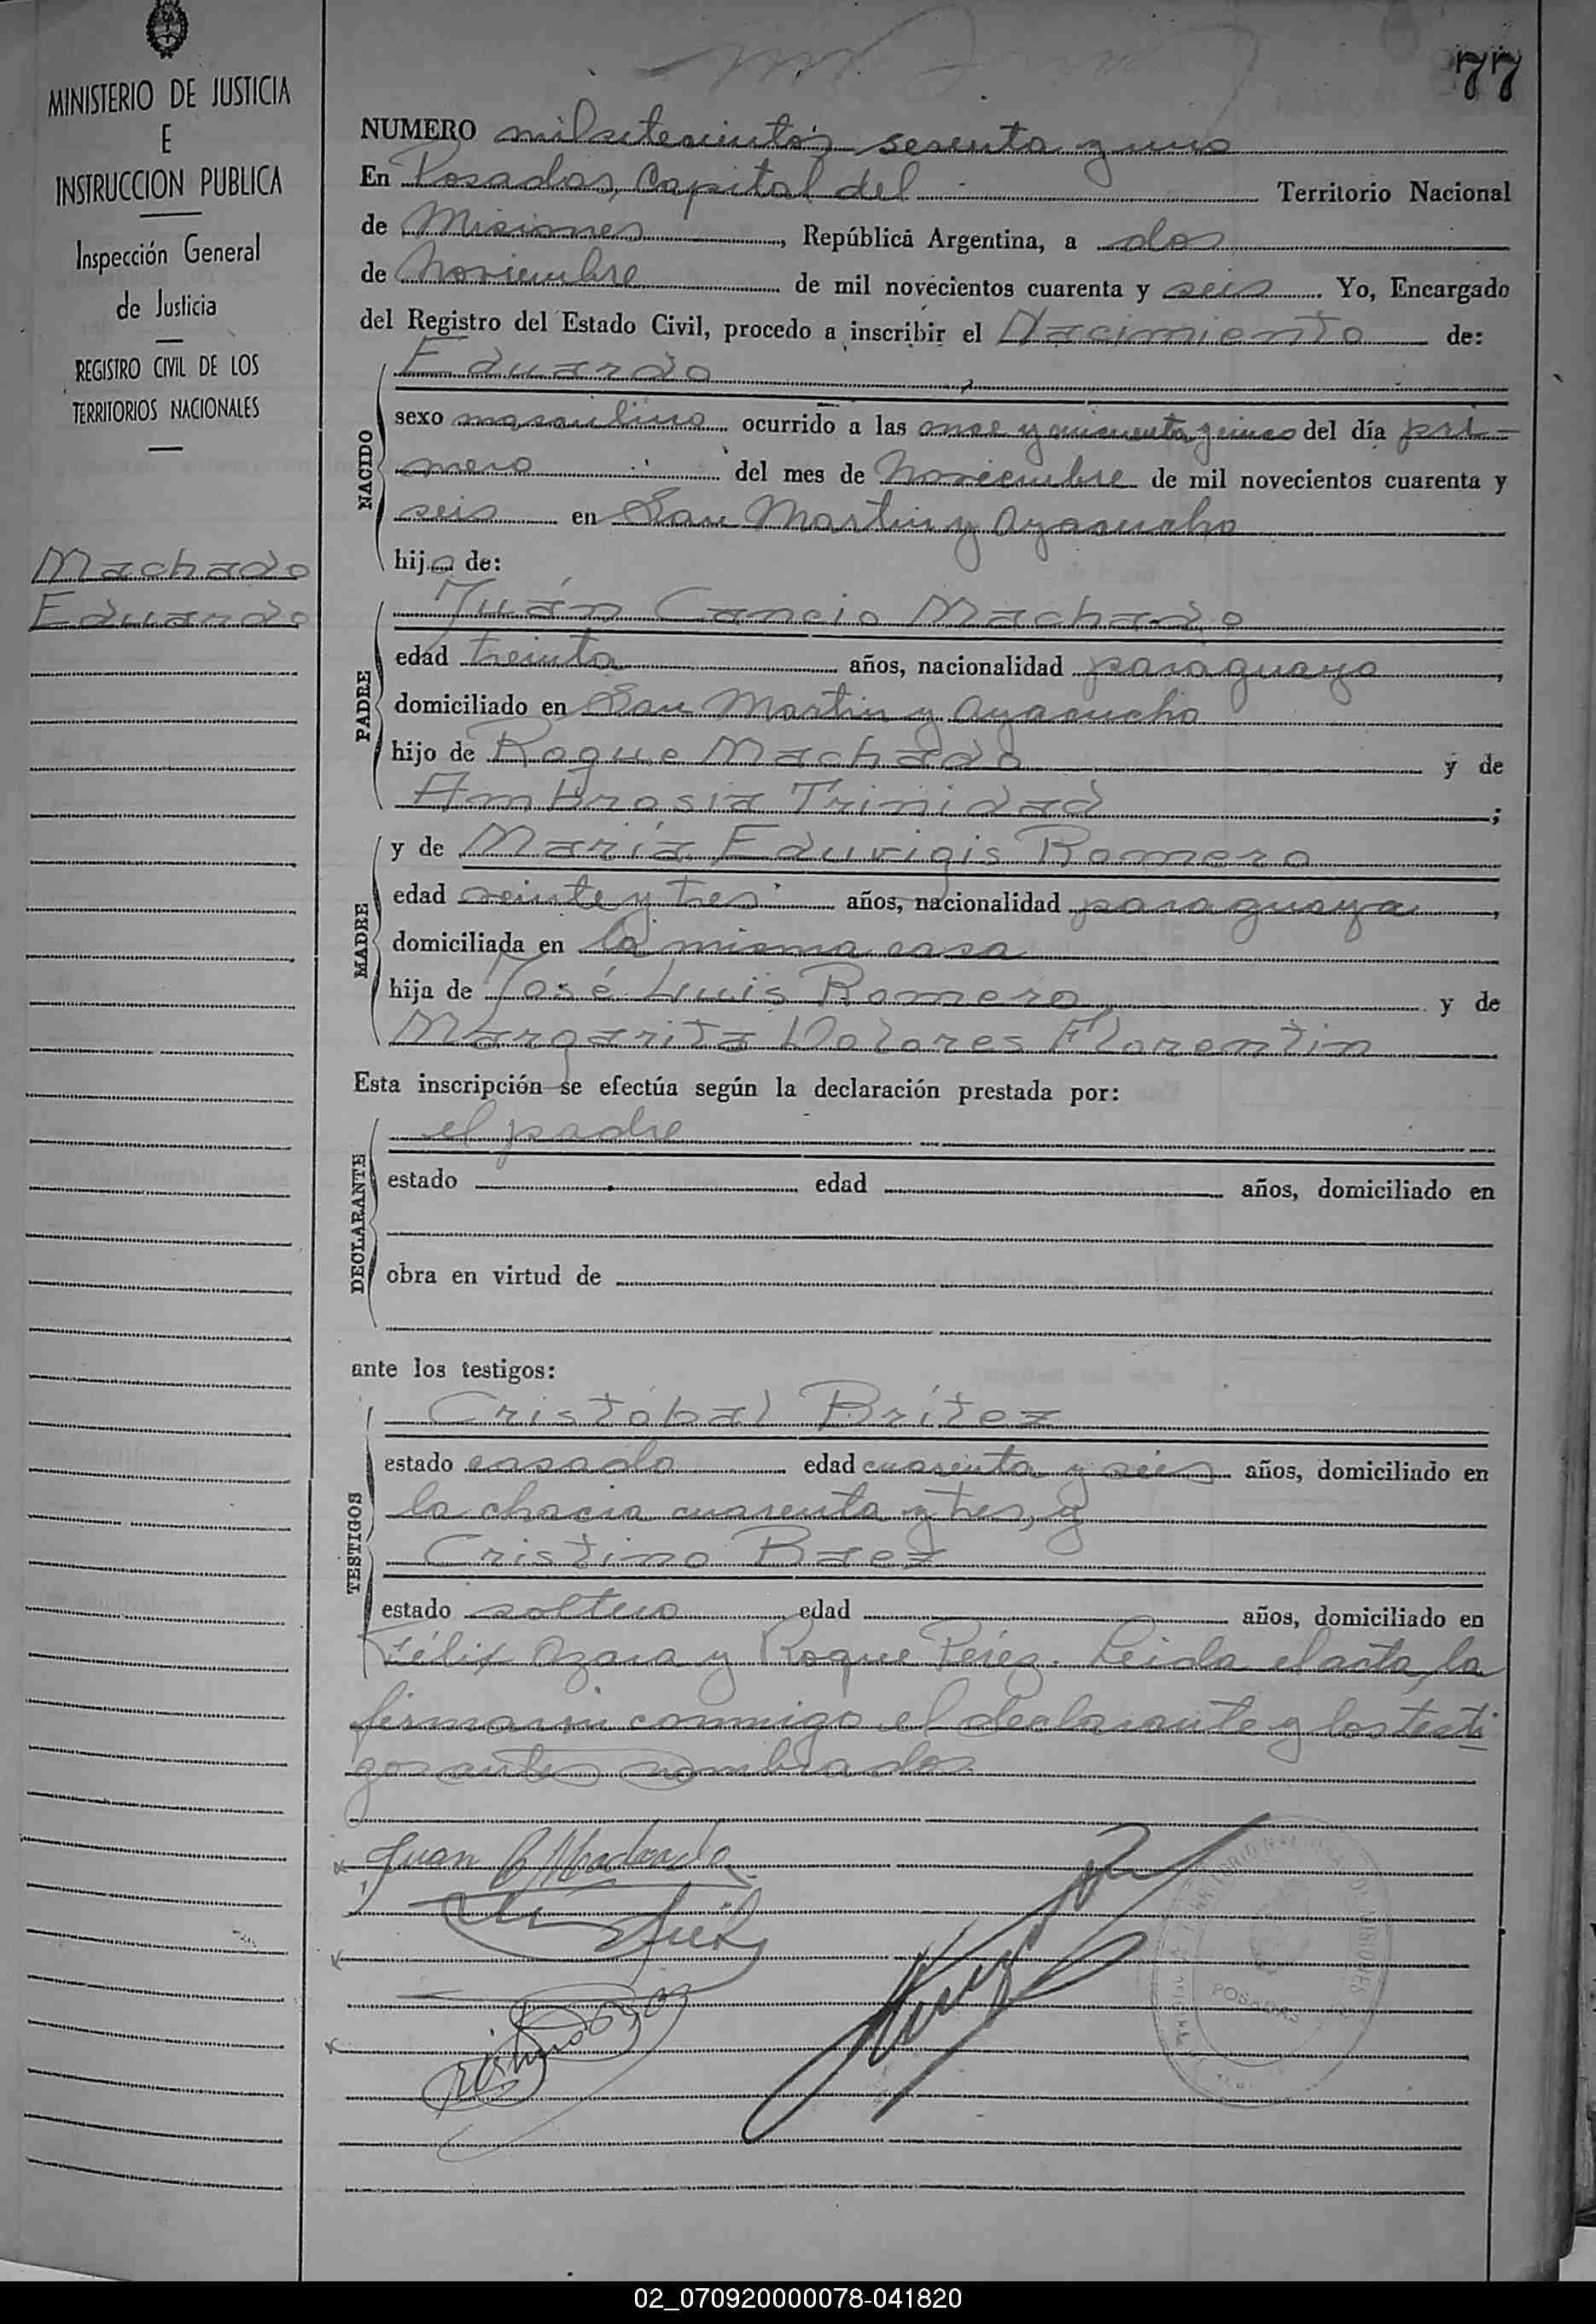 MINISTERIO DE JUSTICIA
E
INSTRUCCION PUBLICA
Inspección General
de Justicia
REGISTRO CIVIL DE LOS
TERRITORIOS NACIONALES
Machado
Eduardo
77
NUMERO mil setecientos sesenta y uno
En Posadas, Capital del Territorio Nacional
de Misiones, República Argentina, a dos
de Noviembre de mil novecientos cuarenta y seis. Yo, Encargado
del Registro del Estado Civil, procedo a inscribir el Nacimiento de:
NACIDO
Eduardo
sexo masculino ocurrido a las once y cincuenta y cinco del día pri-
mero del mes de Noviembre de mil novecientos cuarenta y
seis en San Martin y Ayacucho
hijo de:
PADRE
Juán Cancio Machado
edad treinta años, nacionalidad paraguayo,
domiciliado en San Martin y Ayacucho
hijo de Roque Machado y de
Ambrosia Trinidad;
MADRE
y de María Eduvigis Romero
edad veinte y tres años, nacionalidad paraguaya,
domiciliada en la misma casa
hija de José Luis Romero y de
Margarita Dolores Florentin
Esta inscripción se efectúa según la declaración prestada por:
DECLARANTE
el padre
estado edad años, domiciliado en
obra en virtud de
ante los testigos:
TESTIGOS
Cristóbal Brítez
estado casado edad cuarenta y seis años, domiciliado en
la chacra cuarenta y tres, y
Cristino Baez
estado soltero edad años, domiciliado en
Félix Azara y Roque Pérez. Leida el acta, la
firmaron conmigo el declarante y los testi
gos antes nombrados.
Juan C Machado
POSADAS
02_070920000078-041820